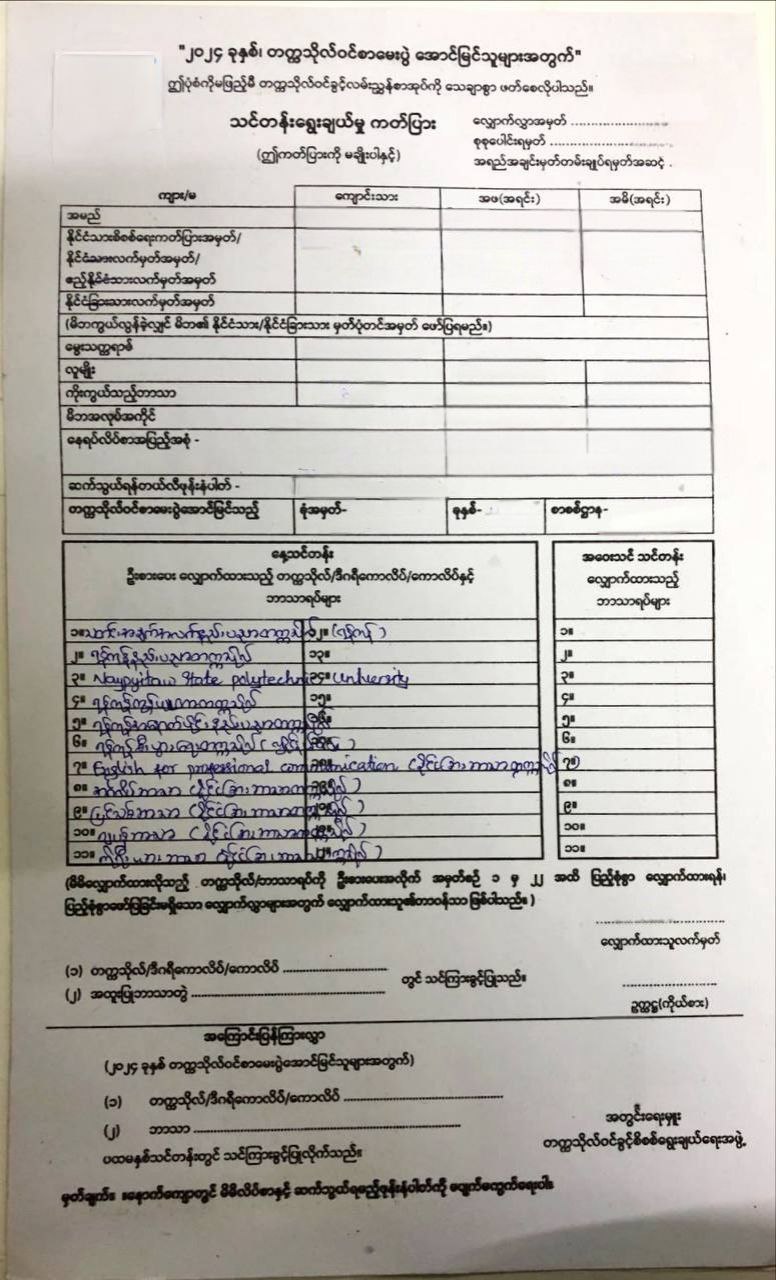 "၂၀၂၄ ခုနှစ်၊ တက္ကသိုလ်ဝင်စာမေးပွဲ အောင်မြင်သူများအတွက်"
ဤပုံစံကိုမဖြည့်မီ တက္ကသိုလ်ဝင်ခွင့်လမ်းညွှန်စာအုပ်ကို သေချာစွာ ဖတ်စေလိုပါသည်။
သင်တန်းရွေးချယ်မှု ကတ်ပြား
လျှောက်လွှာအမှတ် ........................
(ဤကတ်ပြားကို မချိုးပါနှင့်)
စုစုပေါင်းရမှတ် ........................
အရည်အချင်းမှတ်တမ်းချုပ်ရမှတ်အဆင့် .
ကျား/မ ကျောင်းသား အဖ(အရင်း) အမိ(အရင်း)
အမည်
နိုင်ငံသားစိစစ်ရေးကတ်ပြားအမှတ်/
နိုင်ငံသားလက်မှတ်အမှတ်/
ဧည့်နိုင်ငံသားလက်မှတ်အမှတ်
နိုင်ငံခြားသားလက်မှတ်အမှတ်
(မိဘကွယ်လွန်ခဲ့လျှင် မိဘ၏ နိုင်ငံသား/နိုင်ငံခြားသား မှတ်ပုံတင်အမှတ် ဖော်ပြရမည်။)
မွေးသက္ကရာဇ်
လူမျိုး
ကိုးကွယ်သည့်ဘာသာ
မိဘအလုပ်အကိုင်
နေရပ်လိပ်စာအပြည့်အစုံ -
ဆက်သွယ်ရန်တယ်လီဖုန်းနံပါတ် -
တက္ကသိုလ်ဝင်စာမေးပွဲအောင်မြင်သည့် ခုံအမှတ်- ခုနှစ်- စာစစ်ဌာန-
နေ့သင်တန်း
ဦးစားပေး လျှောက်ထားသည့် တက္ကသိုလ်/ဒီဂရီကောလိပ်/ကောလိပ်နှင့်
ဘာသာရပ်များ
အဝေးသင် သင်တန်း
လျှောက်ထားသည့်
ဘာသာရပ်များ
၁။ သတင်းအချက်အလက်နည်းပညာတက္ကသိုလ် ၁၂။ (ရန်ကုန်) ၁။
၂။ ရန်ကုန်နည်းပညာတက္ကသိုလ် ၁၃။ ၂။
၃။ Naypyitaw State polytechnic University ၃။
၄။ ၁၅။ ၄။
၅။ ၅။
၆။ ရန်ကုန်စီးပွားရေးတက္ကသိုလ် ၆။
၇။ English for professional communication (နိုင်ငံခြားဘာသာတက္ကသိုလ်) ၇။
၈။ (နိုင်ငံခြားဘာသာတက္ကသိုလ်) ၈။
၉။ ပြင်သစ်ဘာသာ (နိုင်ငံခြားဘာသာတက္ကသိုလ်) ၉။
၁၀။ ဂျပန်ဘာသာ (နိုင်ငံခြားဘာသာတက္ကသိုလ်) ၁၀။
၁၁။ ကိုရီးယားဘာသာ (နိုင်ငံခြားဘာသာတက္ကသိုလ်) ၁၁။
(မိမိလျှောက်ထားလိုသည့် တက္ကသိုလ်/ဘာသာရပ်ကို ဦးစားပေးအလိုက် အမှတ်စဉ် ၁ မှ ၂၂ အထိ ဖြည့်စုံစွာ လျှောက်ထားရန်၊
ပြည့်စုံစွာဖော်ပြခြင်းမရှိသော လျှောက်လွှာများအတွက် လျှောက်ထားသူ၏တာဝန်သာ ဖြစ်ပါသည်။ )
........................
လျှောက်ထားသူလက်မှတ်
(၁) တက္ကသိုလ်/ဒီဂရီကောလိပ်/ကောလိပ် ........................ တွင် သင်ကြားခွင့်ပြုသည်။
(၂) အထူးပြုဘာသာတွဲ ........................
........................
ဥက္ကဋ္ဌ(ကိုယ်စား)
အကြောင်းပြန်ကြားလွှာ
(၂၀၂၄ ခုနှစ် တက္ကသိုလ်ဝင်စာမေးပွဲအောင်မြင်သူများအတွက်)
(၁) တက္ကသိုလ်/ဒီဂရီကောလိပ်/ကောလိပ် ........................
(၂) ဘာသာ ........................
ပထမနှစ်သင်တန်းတွင် သင်ကြားခွင့်ပြုလိုက်သည်။
အတွင်းရေးမှူး
တက္ကသိုလ်ဝင်ခွင့်စိစစ်ရွေးချယ်ရေးအဖွဲ့
မှတ်ချက်။ ။နောက်ကျောတွင် မိမိလိပ်စာနှင့် ဆက်သွယ်ရမည့်ဖုန်းနံပါတ်ကို မပျက်မကွက်ရေးပါ။